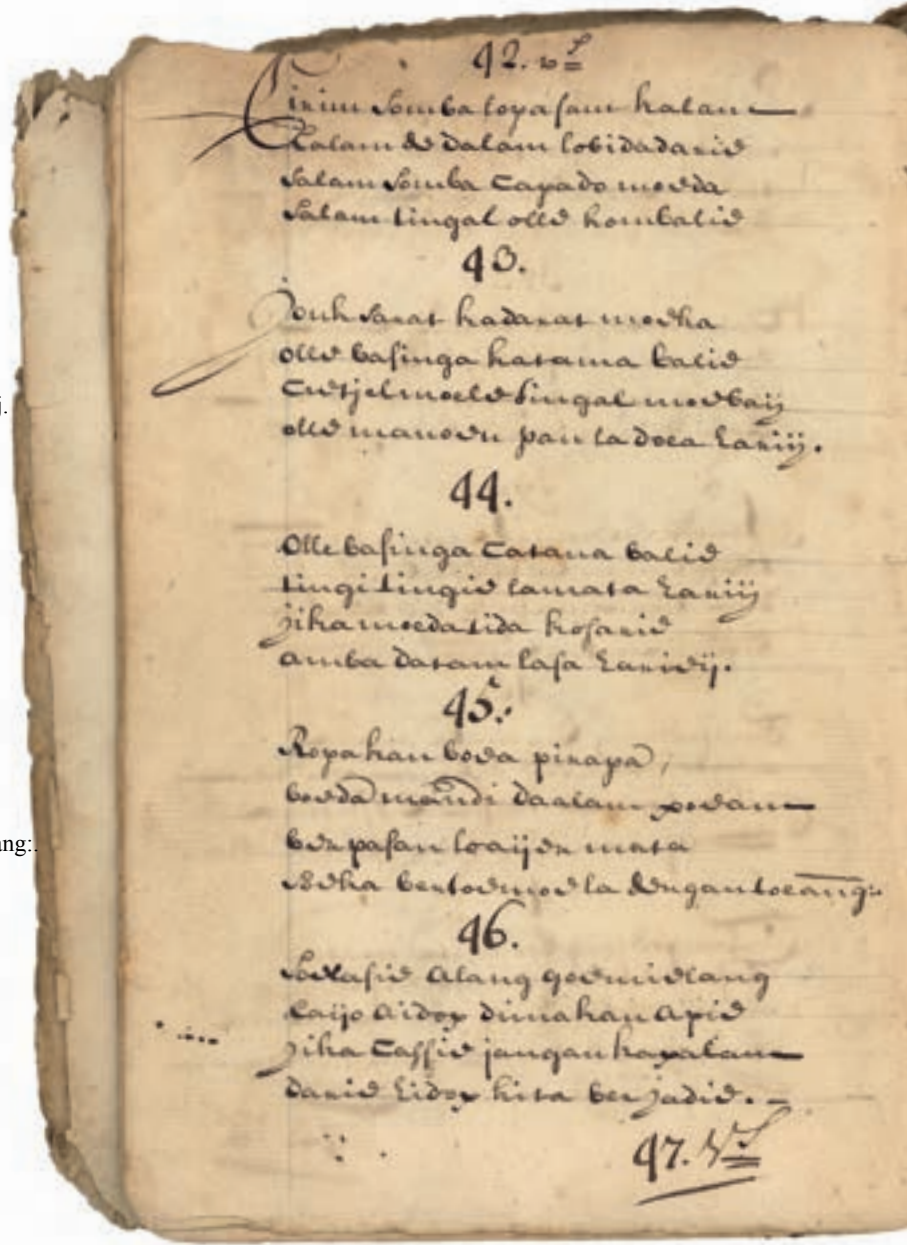 42. vs
Cirim Somba lopasam kalam
Kalam de dalam lobidadarie
Salam Somba Capado moeda
Salam tingal olle kombalie
43.
Jouh darat kadarat moeka
olle basinga katama balie
Cietjel moele tingal moebaij
olle manoen pan la doea harij.
44.
Olle basinga Catana balie
tingi tingie lamata harij
jika moeda tida kosarie
amba datam lasa harieij.
45.
Ropakan boea pinapa,
boeda mandi daalam poeam
berpasan loaijer mata
soeka bertoemoe la dengan toeang:
46.
Soelasie alang goemielang
kaijo aidop dimakan apie
jika Cassie jangan kapalam
darie hidop kita berjadie.
47. Vs
j.
ang: